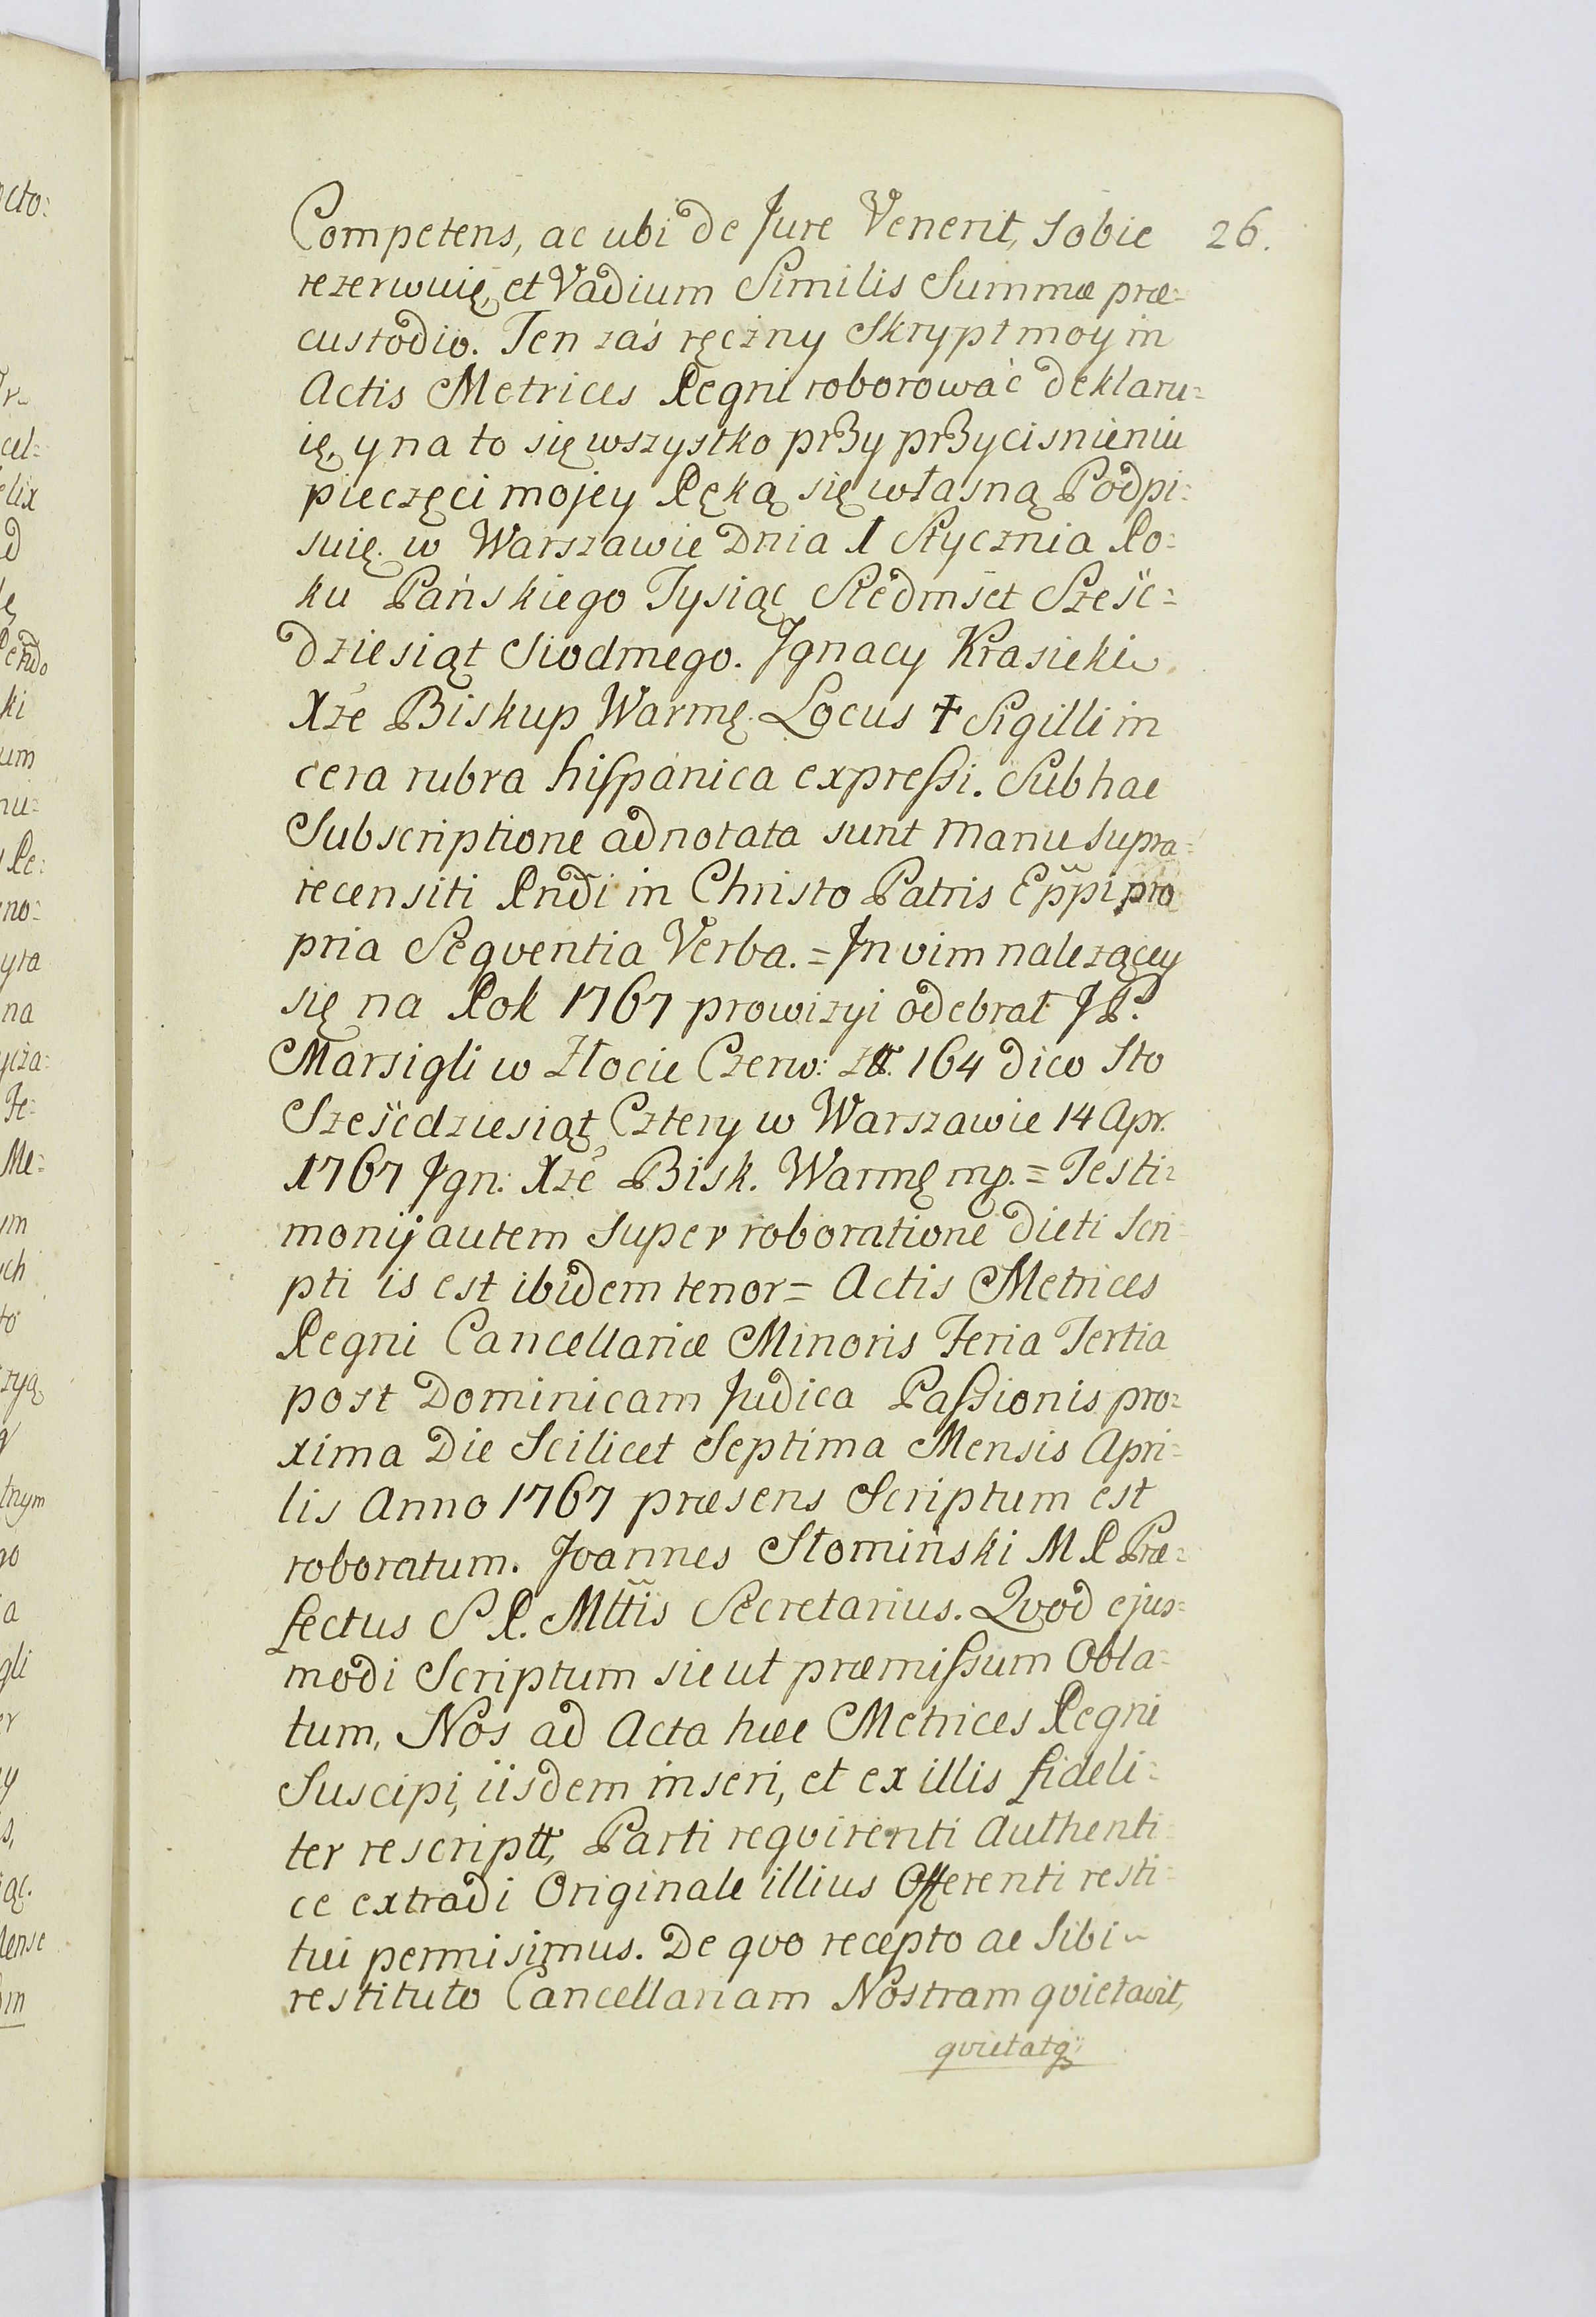 Competens, ac ubi de Jure Venerit, Sobie 26.
rezerwuię, et Vadium Similis Summæ præ=
custodio. Ten zaś ręczny Skrypt moy in
Actis Metrices Regni roborować deklaru=
ię, y na to się wszystko przy przycisnieniu
pieczęci mojey Ręką się własną Podpi=
suię. w Warszawie Dnia 1 Stycznia Ro=
ku Pańskiego Tysiąc Siedmset Sześć=
dziesiąt Siodmego. Jgnacy Krasicki
Xże Biskup Warmę. Locus ✝ Sigilli in
cera rubra hispanica expressi. Sub hac
Subscriptione adnotata sunt manu supra=
recensiti Rndi in Christo Patris Eppi pro
pria Seqventia Verba. = Jn vim nalezącey
się na Rok 1767 prowizyi odebrał JP.
Marsigli w Złocie Czerw: złł. 164 dico Sto
Sześćdziesiąt Cztery w Warszawie 14 Apr.
1767 Jgn: Xże Bisk. Warmę mp. = Testi=
monij autem super roboratione dicti Scri=
pti is est ibidem tenor = Actis Metrices
Regni Cancellariæ Minoris Feria Tertia
post Dominicam Judica Passionis pro=
xima Die Scilicet Septima Mensis Apri=
lis Anno 1767 præsens Scriptum est
roboratum. Joannes Słomiński M R Præ=
fectus S R. Mttis Secretarius. Qvod ejus=
modi Scriptum sicut præmissum Obla=
tum, Nos ad Acta hæc Metrices Regni
Suscipi, iisdem inseri, et ex illis fideli=
ter rescriptt, Parti reqvirenti Authenti=
ce extradi Originale illius Offerenti resti=
tui permisimus. De qvo recepto ac Sibi
restituto Cancellariam Nostram qvietavit,
qvietatq;